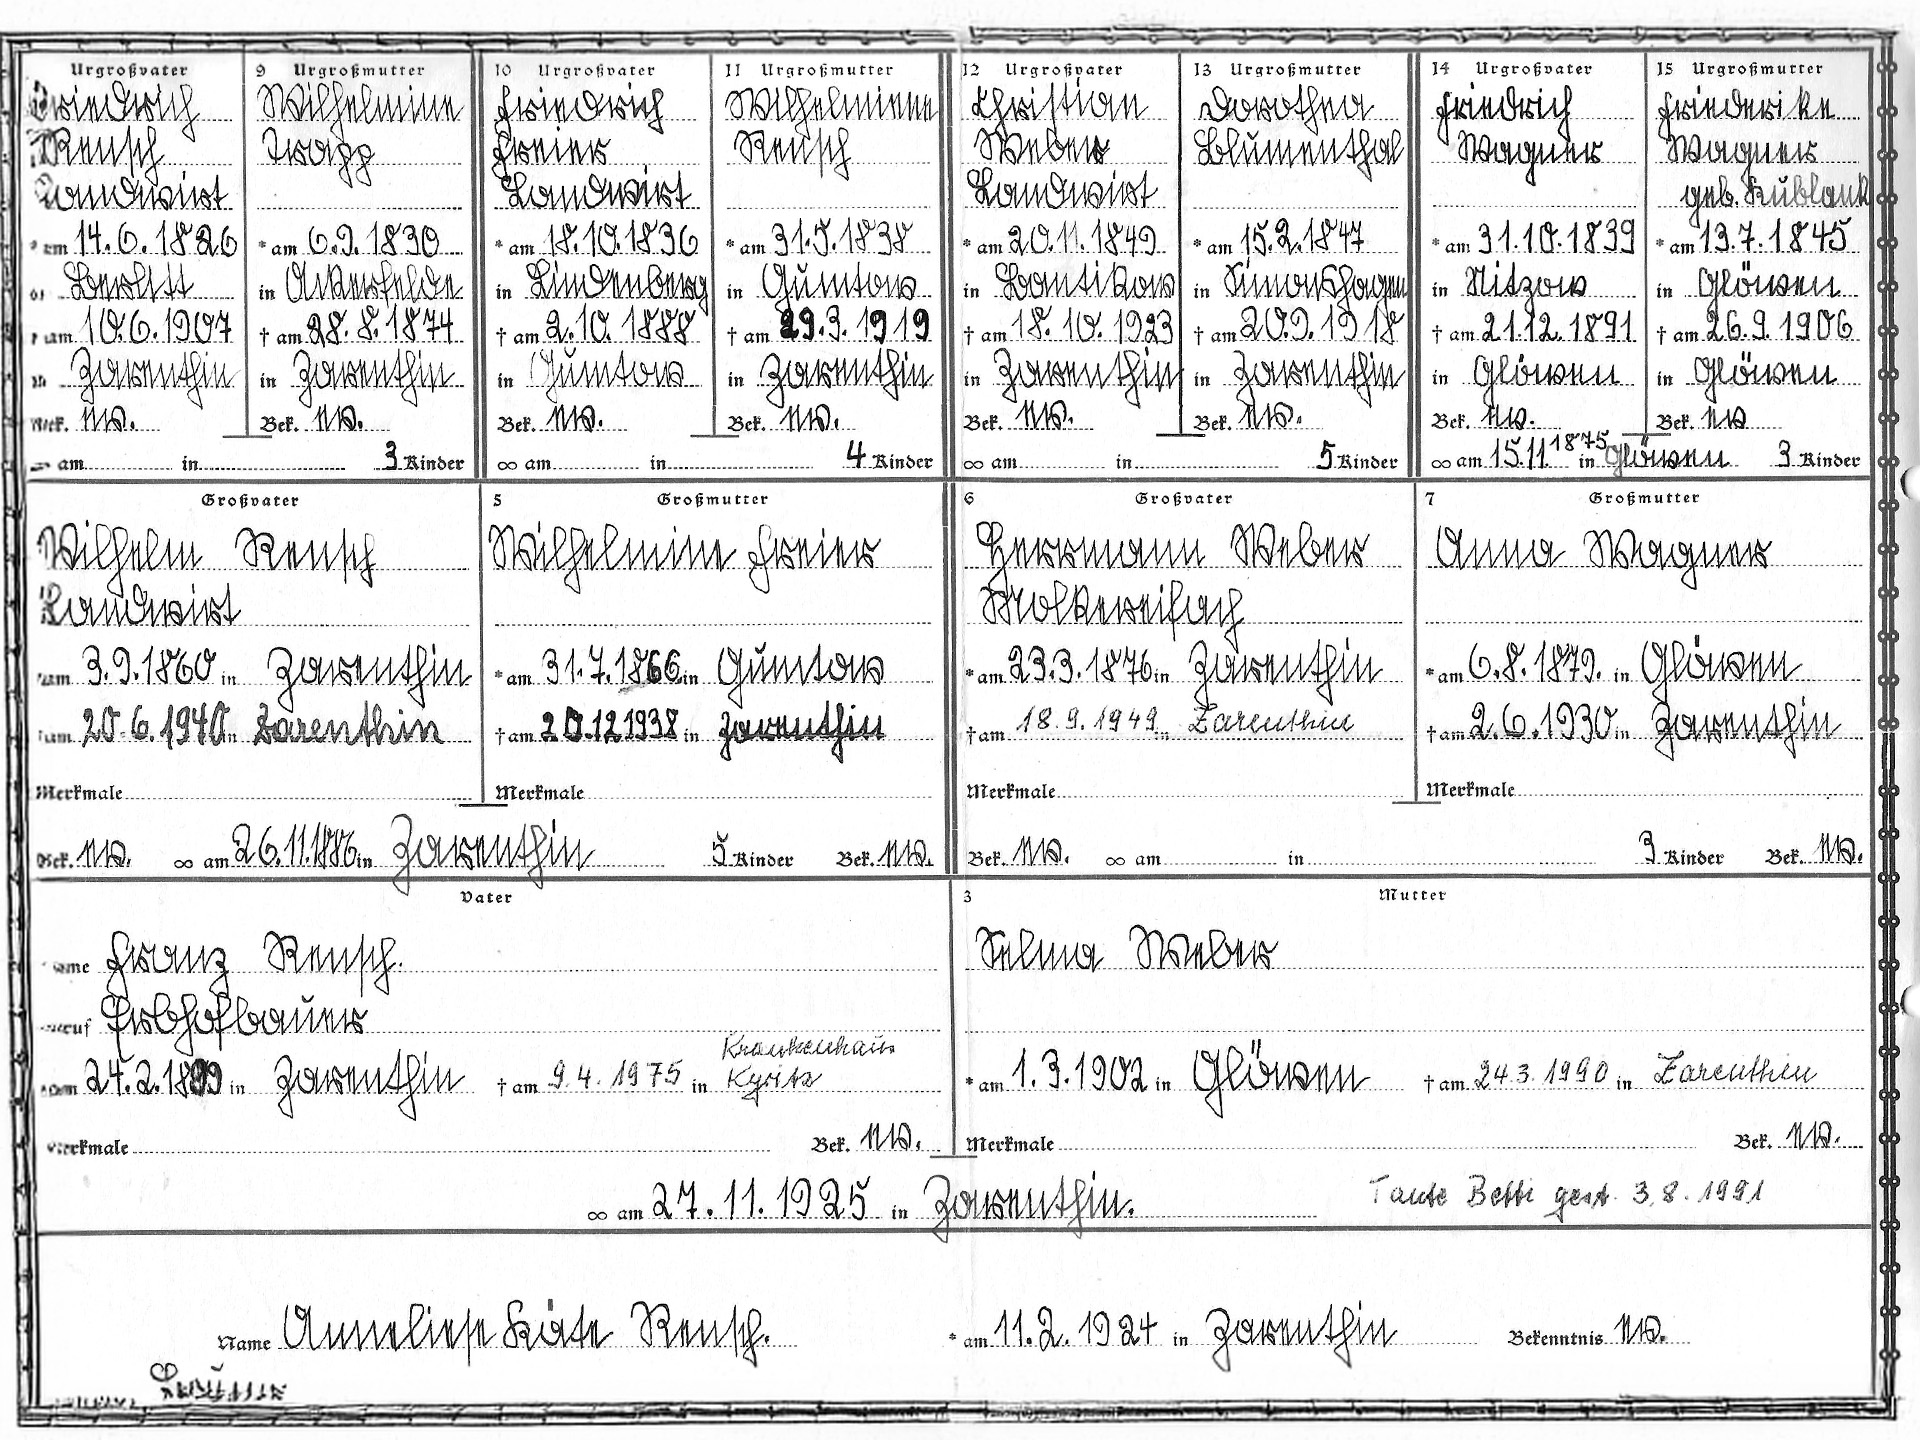 Urgroßvater
Friedrich
Rensch
Landwirt
am 14.6.1826
Berlitt
am 10.6.1907
Zarenthin
Bek. ev.
9 Urgroßmutter
Wilhelmine
Trapp
* am 6.9.1830
in Ackerfelde
† am 28.8.1874
in Zarenthin
Bek. ev.
am in 3 Kinder
10 Urgroßvater
Friedrich
Freier
Landwirt
* am 18.10.1836
in Lindenberg
† am 2.10.1888
in Gumtow
Bek. ev.
11 Urgroßmutter
Wilhelmiene
Rensch
* am 31.5.1838
in Gumtow
† am 29.3.1919
in Zarenthin
Bek. ev.
∞ am in 4 Kinder
12 Urgroßvater
Christian
Weber
Landwirt
* am 20.11.1849
in Bantikow
† am 18.10.1923
in Zarenthin
Bek. ev.
13 Urgroßmutter
Dorothea
Blumenthal
* am 15.2.1847
in Simonshagen
† am 20.9.1918
in Zarenthin
Bek. ev.
∞ am in 5 Kinder
14 Urgroßvater
Friedrich
Wagner
* am 31.10.1839
in Nitzow
† am 21.12.1891
in Glöwen
Bek. ev.
15 Urgroßmutter
Friederike
Wagner
geb. Kublank
* am 13.7.1845
in Glöwen
† am 26.9.1906
in Glöwen
Bek. ev
∞ am 15.11.1875 in Glöwen 3 Kinder
Großvater
Wilhelm Rensch
Landwirt
am 3.9.1860 in Zarenthin
am 20.6.1940 in Zarenthin
Merkmale
5 Großmutter
Wilhelmine Freier
* am 31.7.1866 in Gumtow
† am 20.12.1938 in Zarenthin
Merkmale
Bek. ev. ∞ am 26.11.1886 in Zarenthin 5 Kinder Bek. ev.
6 Großvater
Herrmann Weber
Molkereifach
* am 23.3.1876 in Zarenthin
† am 18.9.1949 in Zarenthin
Merkmale
7 Großmutter
Anna Wagner
* am 6.8.1879. in Glöwen
† am 2.6.1930 in Zarenthin
Merkmale
Bek. ev. ∞ am in 3 Kinder Bek. ev.
Vater
Name Franz Rensch.
Beruf Erbhofbauer
am 24.2.1899 in Zarenthin † am 9.4.1975 in Krankenhaus
Kyritz
Merkmale Bek. ev.
3 Mutter
Selma Weber
* am 1.3.1902 in Glöwen † am 24.3.1990 in Zarenthin
Merkmale Bek. ev.
∞ am 27.11.1925 in Zarenthin.
Tante Betti gest. 3.8.1991
Name Anneliese Käte Rensch. * am 11.2.1924 in Zarenthin Bekenntnis ev.